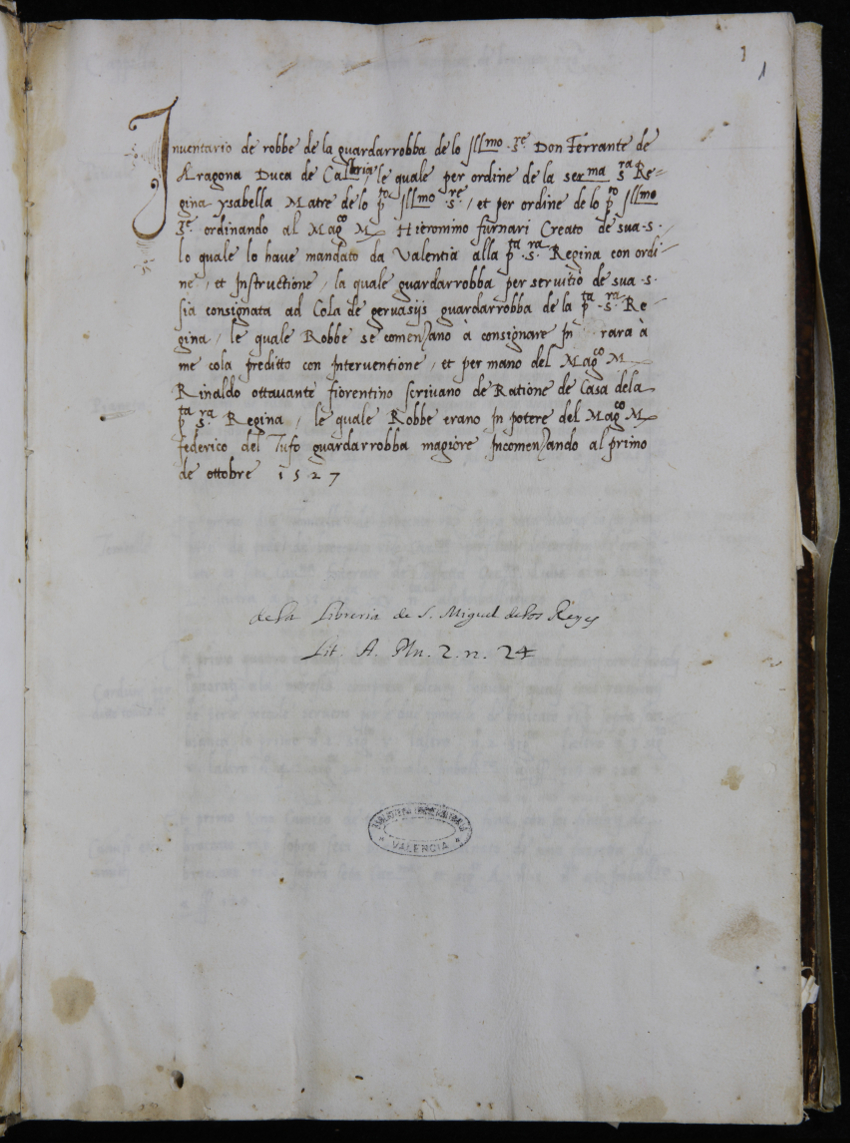 1
1
Inventario de robbe de la guardarrobba de lo Illmo. Sre. Don Ferrante de
Aragona Duca de Calabria, le quale per ordine de la serma sra Re-
gina ysabella Matre de lo pto Illmo sre, et per ordine de lo pto Illmo
Sre. ordinando al Magco Mx Hieronimo furnari Creato de sua .s.
lo quale lo have mandato da Valentia alla pta .sra. Regina con ordi
ne, et Instructione, la quale guardarrobba per servitio de sua .s.
sia consignata ad Cola de gervasys guardarrobba de la pta .sra. Re-
gina, le quale Robbe se comenzano à consignare In rara à
me cola preditto con Interventione, et per mano del Magco M
Rinaldo ottavante fiorentino scrivano de Ratione de Casa dela
pta sra. Regina, le quale Robbe erano In potere del Magco Mx
federico del Tufo guardarrobba magiore Incomenzando al primo
de ottobre 1527
de la Libreria de S. Miguel de los Reyes
Lit. A. Plu. 2. n. 24
BIBLIOTECA UNIVERSITARIA
VALENCIA